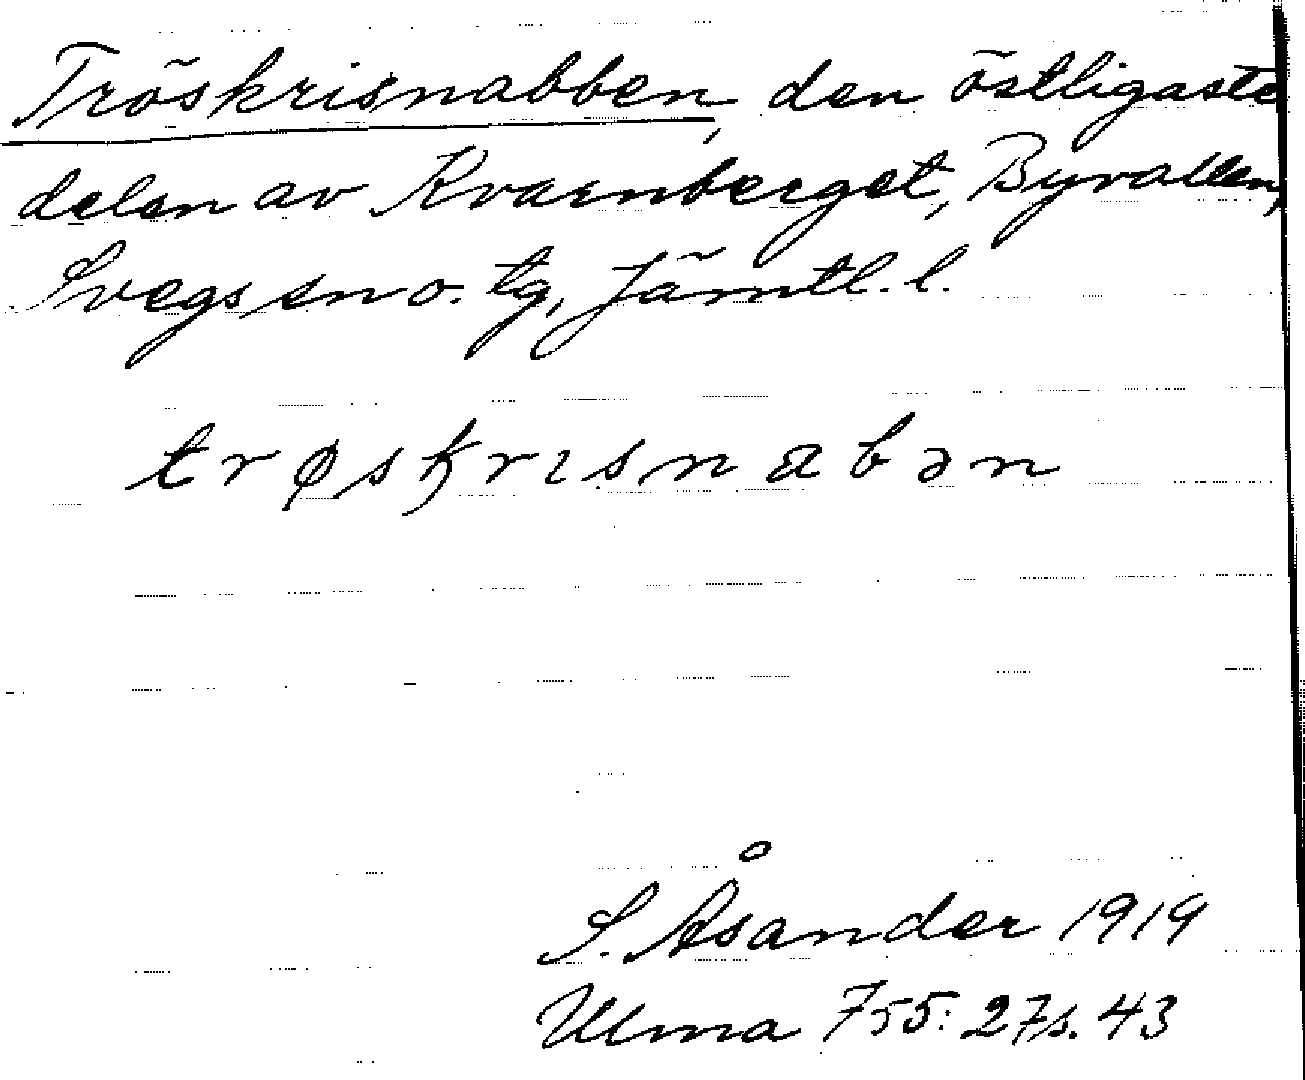 Tröskrisnabben, den östligaste
delen av Kvarnberget, Byvallen,
Svegs sn o. tg, Jämtl. l.
trøskrɪsnabən
S. Åsander 1919
Ulma 755: 27 s. 43